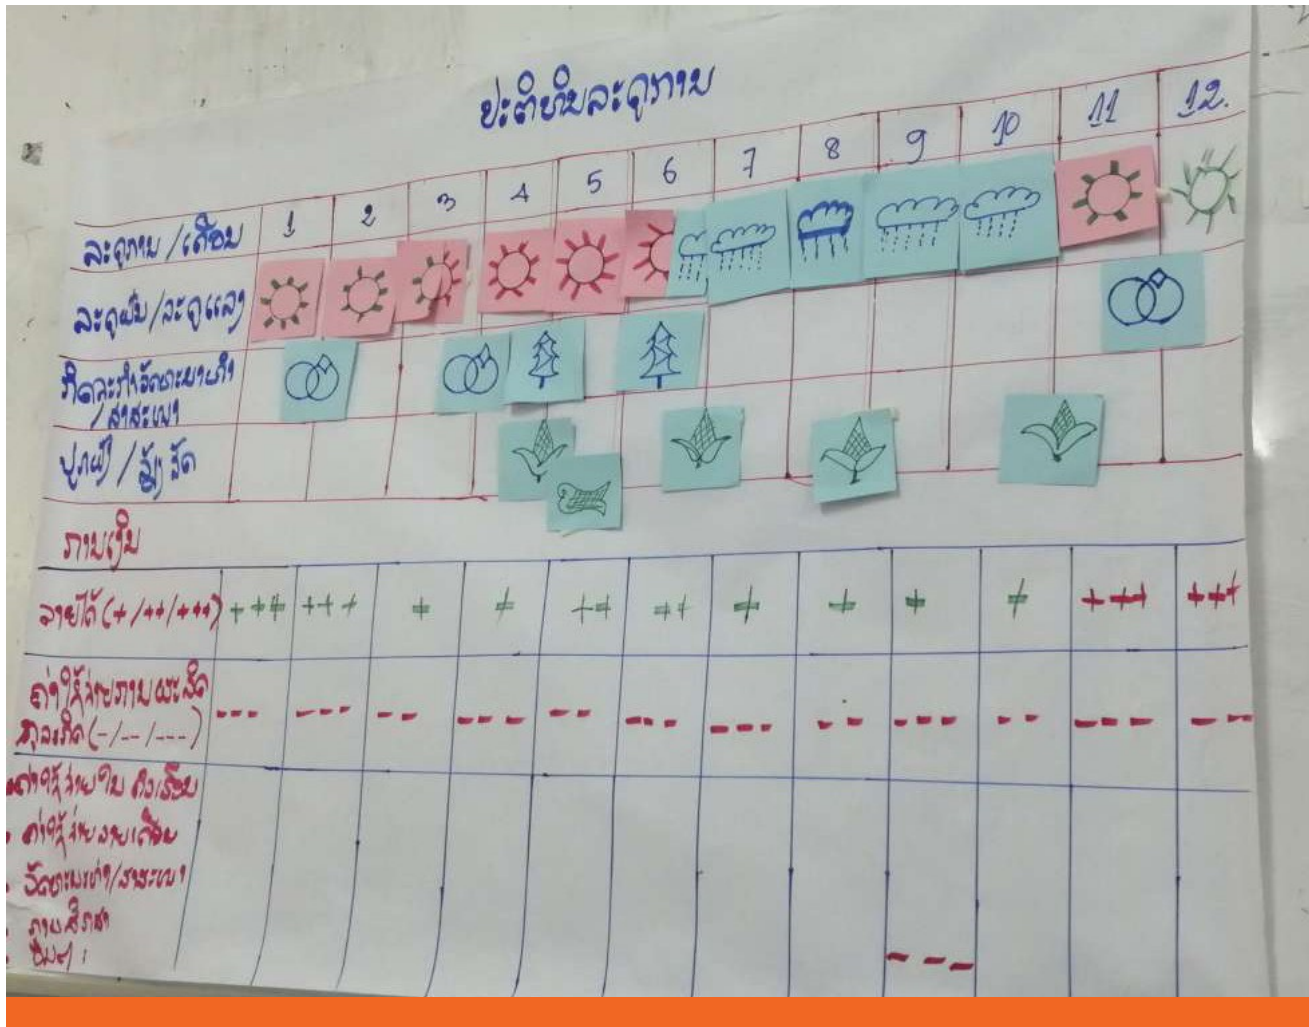 ປະຕິທິນລະດູການ
ລະດູການ/ເດືອນ 1 2 3 4 5 6 7 8 9 10 11 12.
ລະດູຝົນ/ລະດູແລ້ງ
ກິດຈະກຳວັດທະນະທຳ
/ສາສະໜາ
ປູກຝັງ/ລ້ຽງສັດ
ການເງິນ
ລາຍໄດ້ (+/++/+++) +++ +++ + + ++ ++ + + + + +++ +++
ຄ່າໃຊ້ຈ່າຍການຜະລິດ
ທຸລະກິດ (-/--/---) --- --- -- --- -- --- --- -- --- -- --- --
ຄ່າໃຊ້ຈ່າຍໃນຄົວເຮືອນ
ຄ່າໃຊ້ຈ່າຍລາຍເດືອນ
ວັດທະນະທຳ/ສາສະໜາ
ການສຶກສາ
ອື່ນໆ: ---